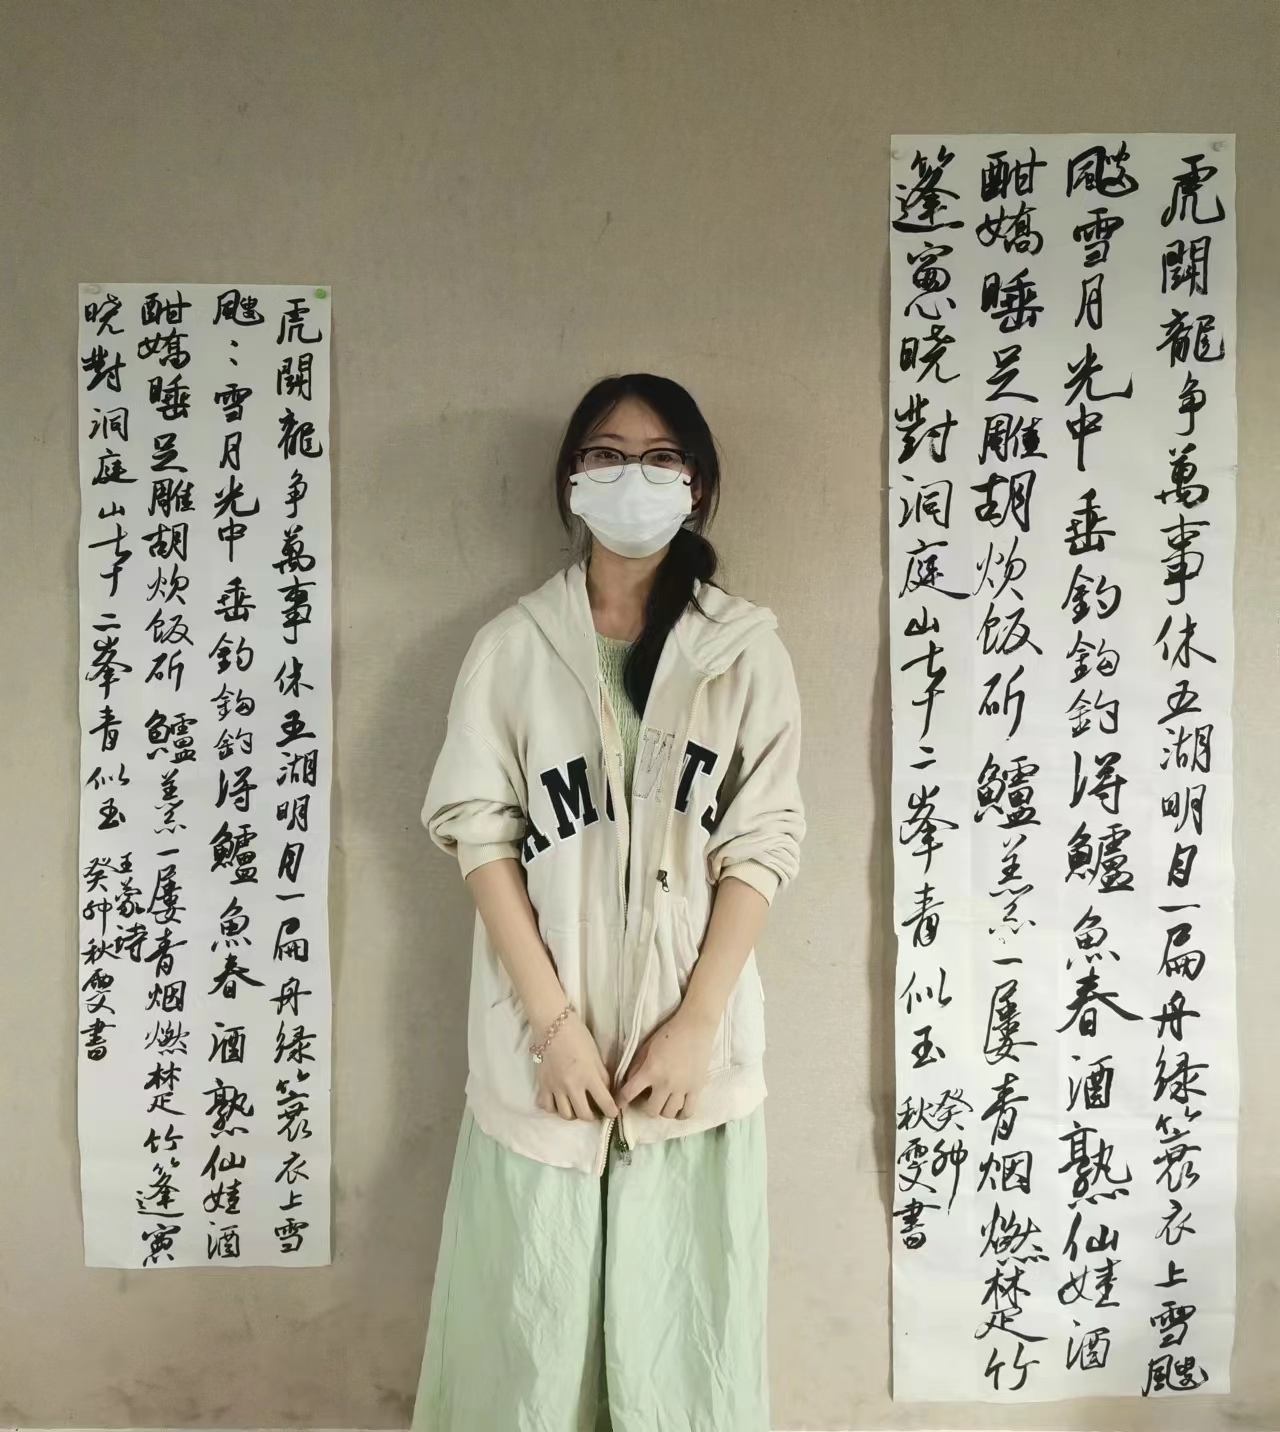 虎鬬龍争萬事休五湖明月一扁舟绿簑衣上雪颼
颼雪月光中垂釣鈎釣得鱸魚春酒熟仙娃酒
酣嬌睡足雕胡炊飯斫鱸羹一屢青烟燃楚竹
篷窻晓對洞庭山七十二峯青似玉
癸卯
秋雯書
虎鬬龍争萬事休五湖明月一扁舟绿簑衣上雪
颼〻雪月光中垂釣鈎釣得鱸魚春酒熟仙娃酒
酣嬌睡足雕胡炊飯斫鱸羹一屢青烟燃楚竹篷窻
晓對洞庭山七十二峯青似玉
王蒙詩
癸卯秋雯書